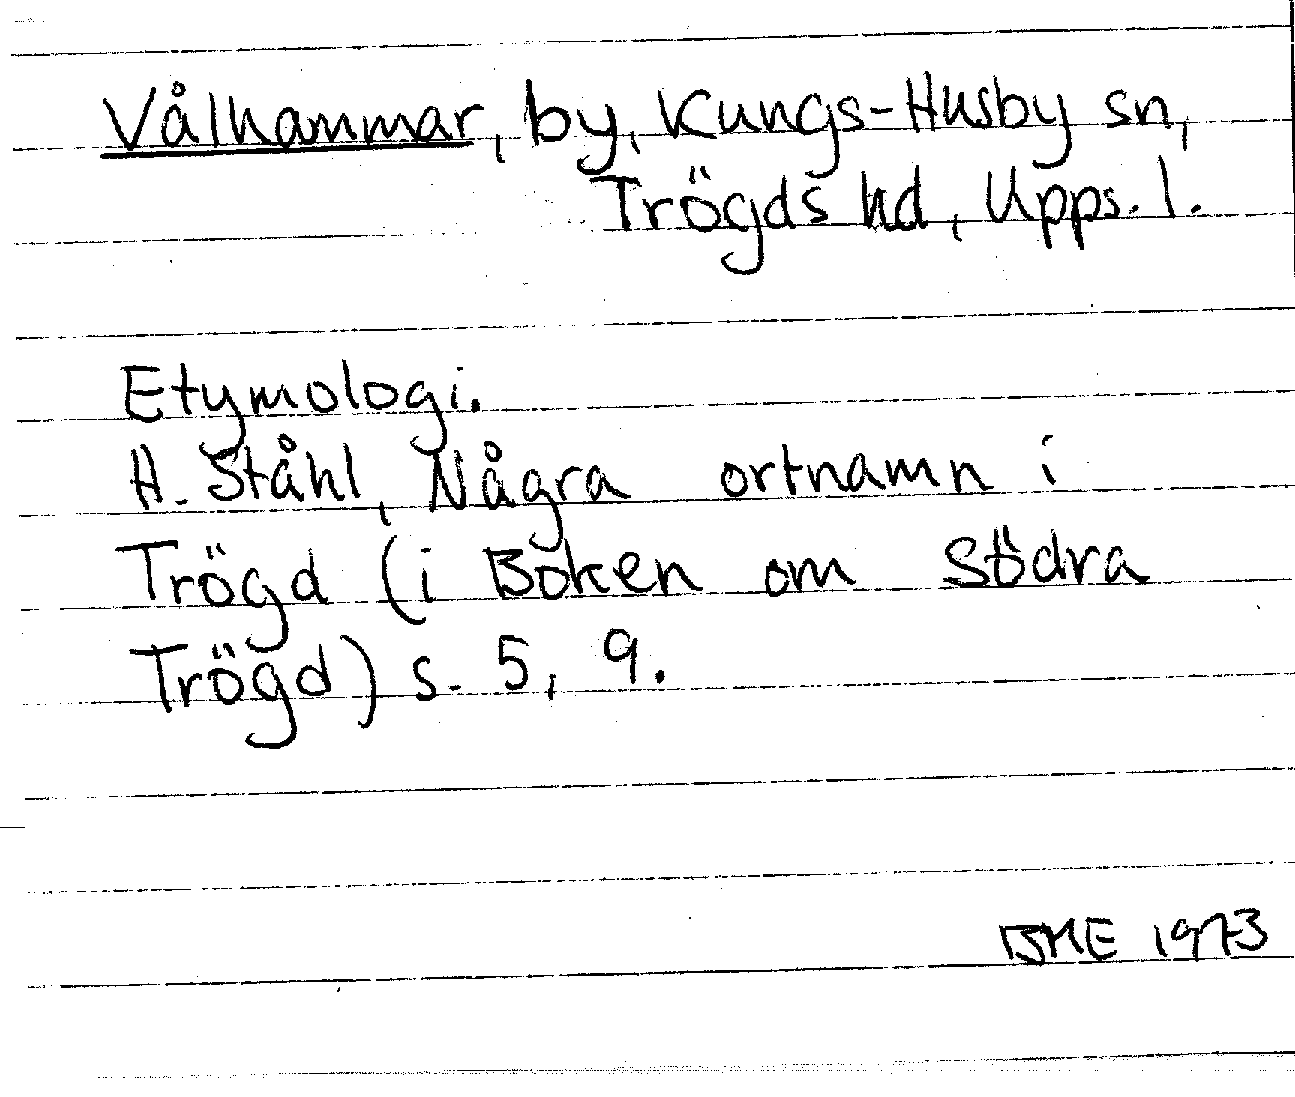 Vålhammar, by, Kungs-Husby sn,
Trögds hd, Upps. l.
Etymologi.
H. Ståhl, Några ortnamn i
Trögd (i Boken om Södra
Trögd) s. 5, 9.
BME 1973